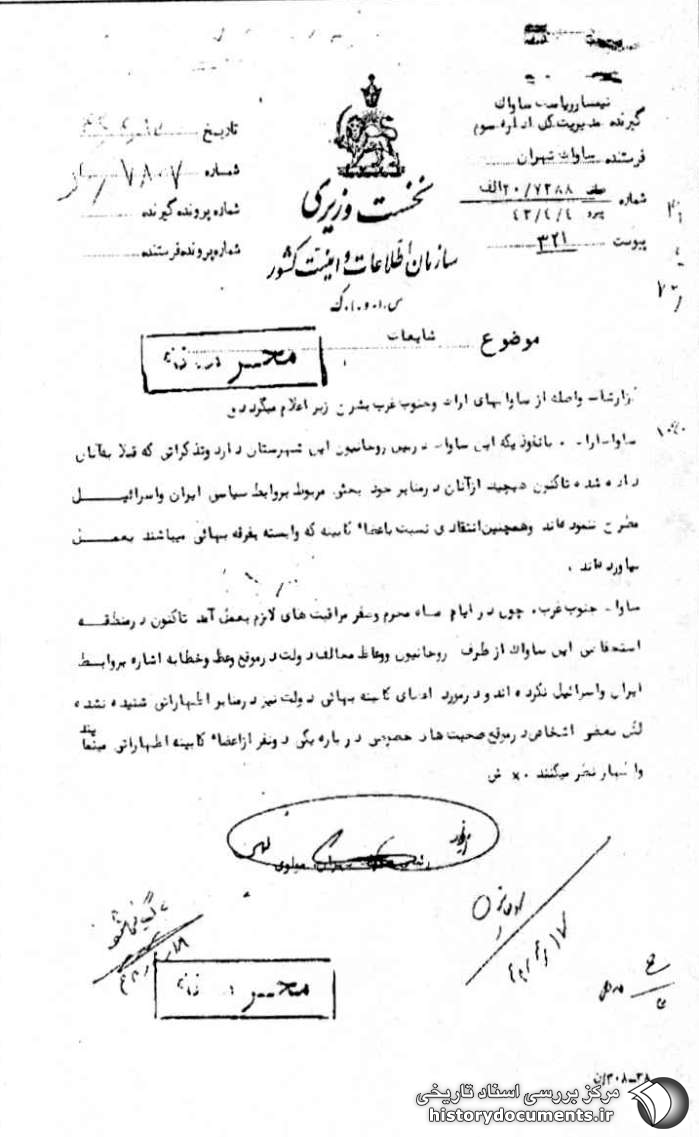 تیمسار ریاست ساواک
گیرنده مدیریت کل اداره سوم
فرستنده ساواک تهران
شماره ۲۰/۷۲۸۸ الف
۴۳/۴/۴
پیوست ۳۲۱
نخست وزیری
سازمان اطلاعات و امنیت کشور
س.ا.و.ا.ک
تاریخ
شماره ۷۸۰۷
شماره پرونده گیرنده
شماره پرونده فرستنده
موضوع شایعات
محرمانه
گزارشات واصله از ساواکهای اراک وجنوب غرب بشرح زیر اعلام میگردد
ساواک اراک . بانفوذیکه این ساواک دربین روحانیون این شهرستان دارد وتذکراتی که قبلا بآنان
داده شده تاکنون هیچیک ازآنان درمنابر خود بحثی مربوط بروابط سیاسی ایران واسرائیل
مطرح ننموده‌اند وهمچنین انتقادی نسبت باعضاء کابینه که وابسته بفرقه بهائی میباشند بعمل
نیاورده‌اند .
ساواک جنوب غرب . چون در ایام ماه محرم وصفر مراقبت های لازم بعمل آمد تاکنون درمنطقه
استحفاظی این ساواک از طرف روحانیون ووعاظ مخالف دولت درموقع وعظ وخطابه اشاره بروابط
ایران واسرائیل نکرده اند و درمورد اعضای کابینه بهائی دولت نیز درمنابر اظهاراتی شنیده نشده
لکن بعضی اشخاص درموقع صحبت های خصوصی درباره یکی دونفر ازاعضاء کابینه اظهاراتی مینمایند
واظهار نظر میکنند .× ش
رئیس ساواک تهران. مولوی
محرمانه
۳۰۸-۳۸/ن
مرکز بررسی اسناد تاریخی
historydocuments.ir